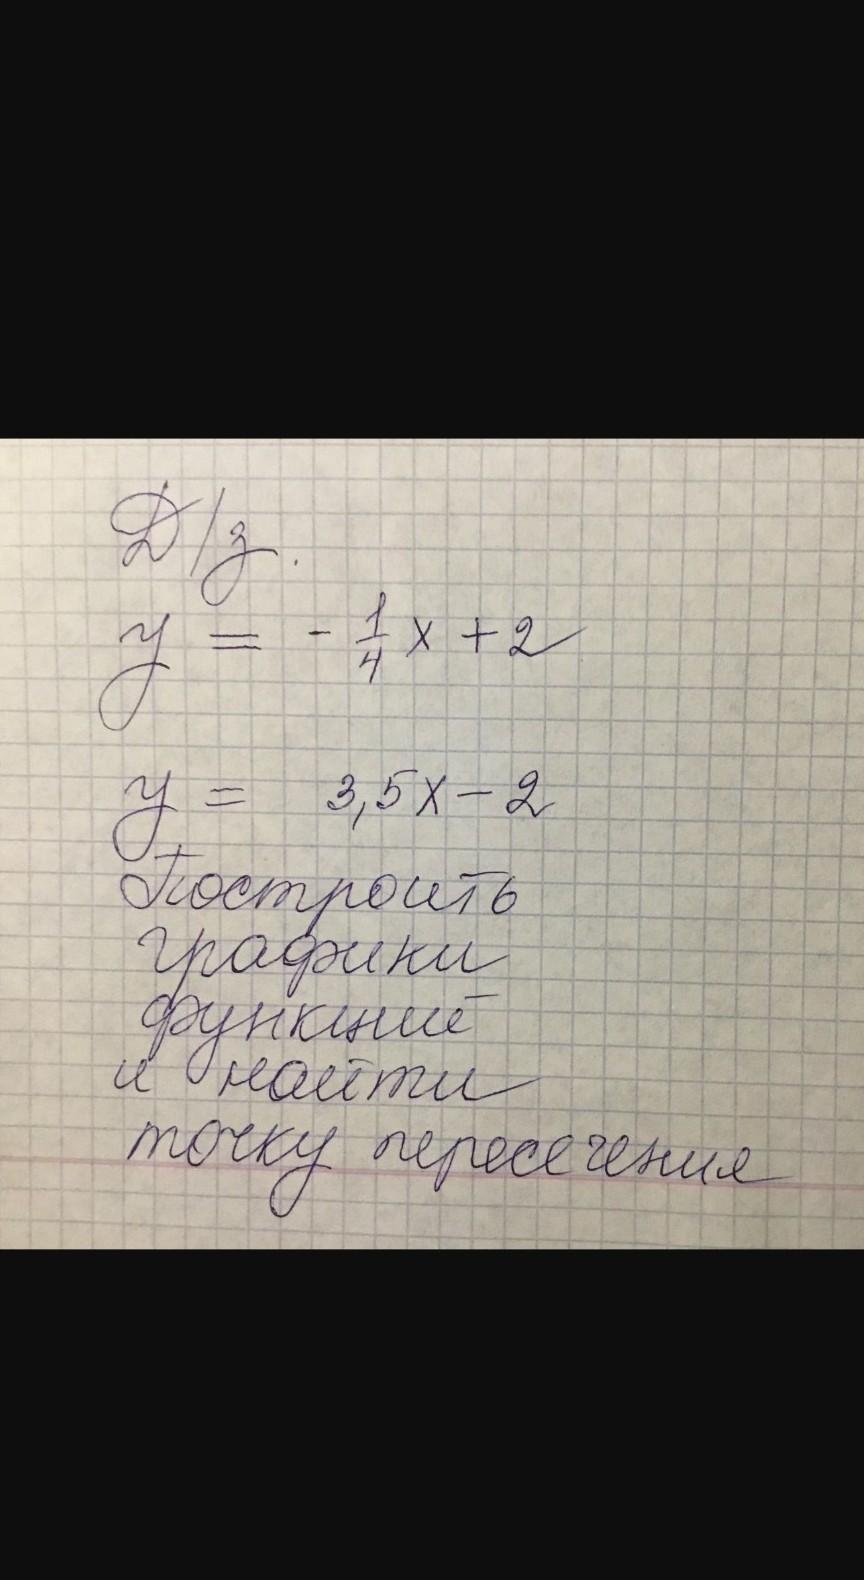 Д/з.
y = - 1/4 x + 2
y = 3,5x - 2
Построить
графики
функций
и найти
точку пересечения